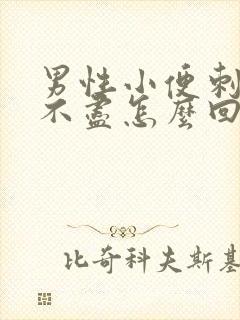 男性小便刺
不盡怎麼回
比奇科夫斯基